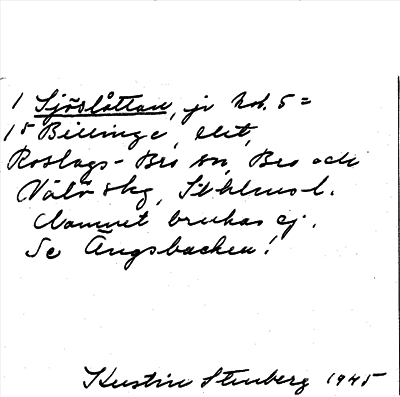 1 Sjöslåttan, jr kok. 5 =
1⁵ Billinge, Slit,
Roslags-Bro sn, Bro och
Vätö skg, Sthlms l.
Namnet brukas ej.
Se Ängsbacken!
Kerstin Stenberg 1945